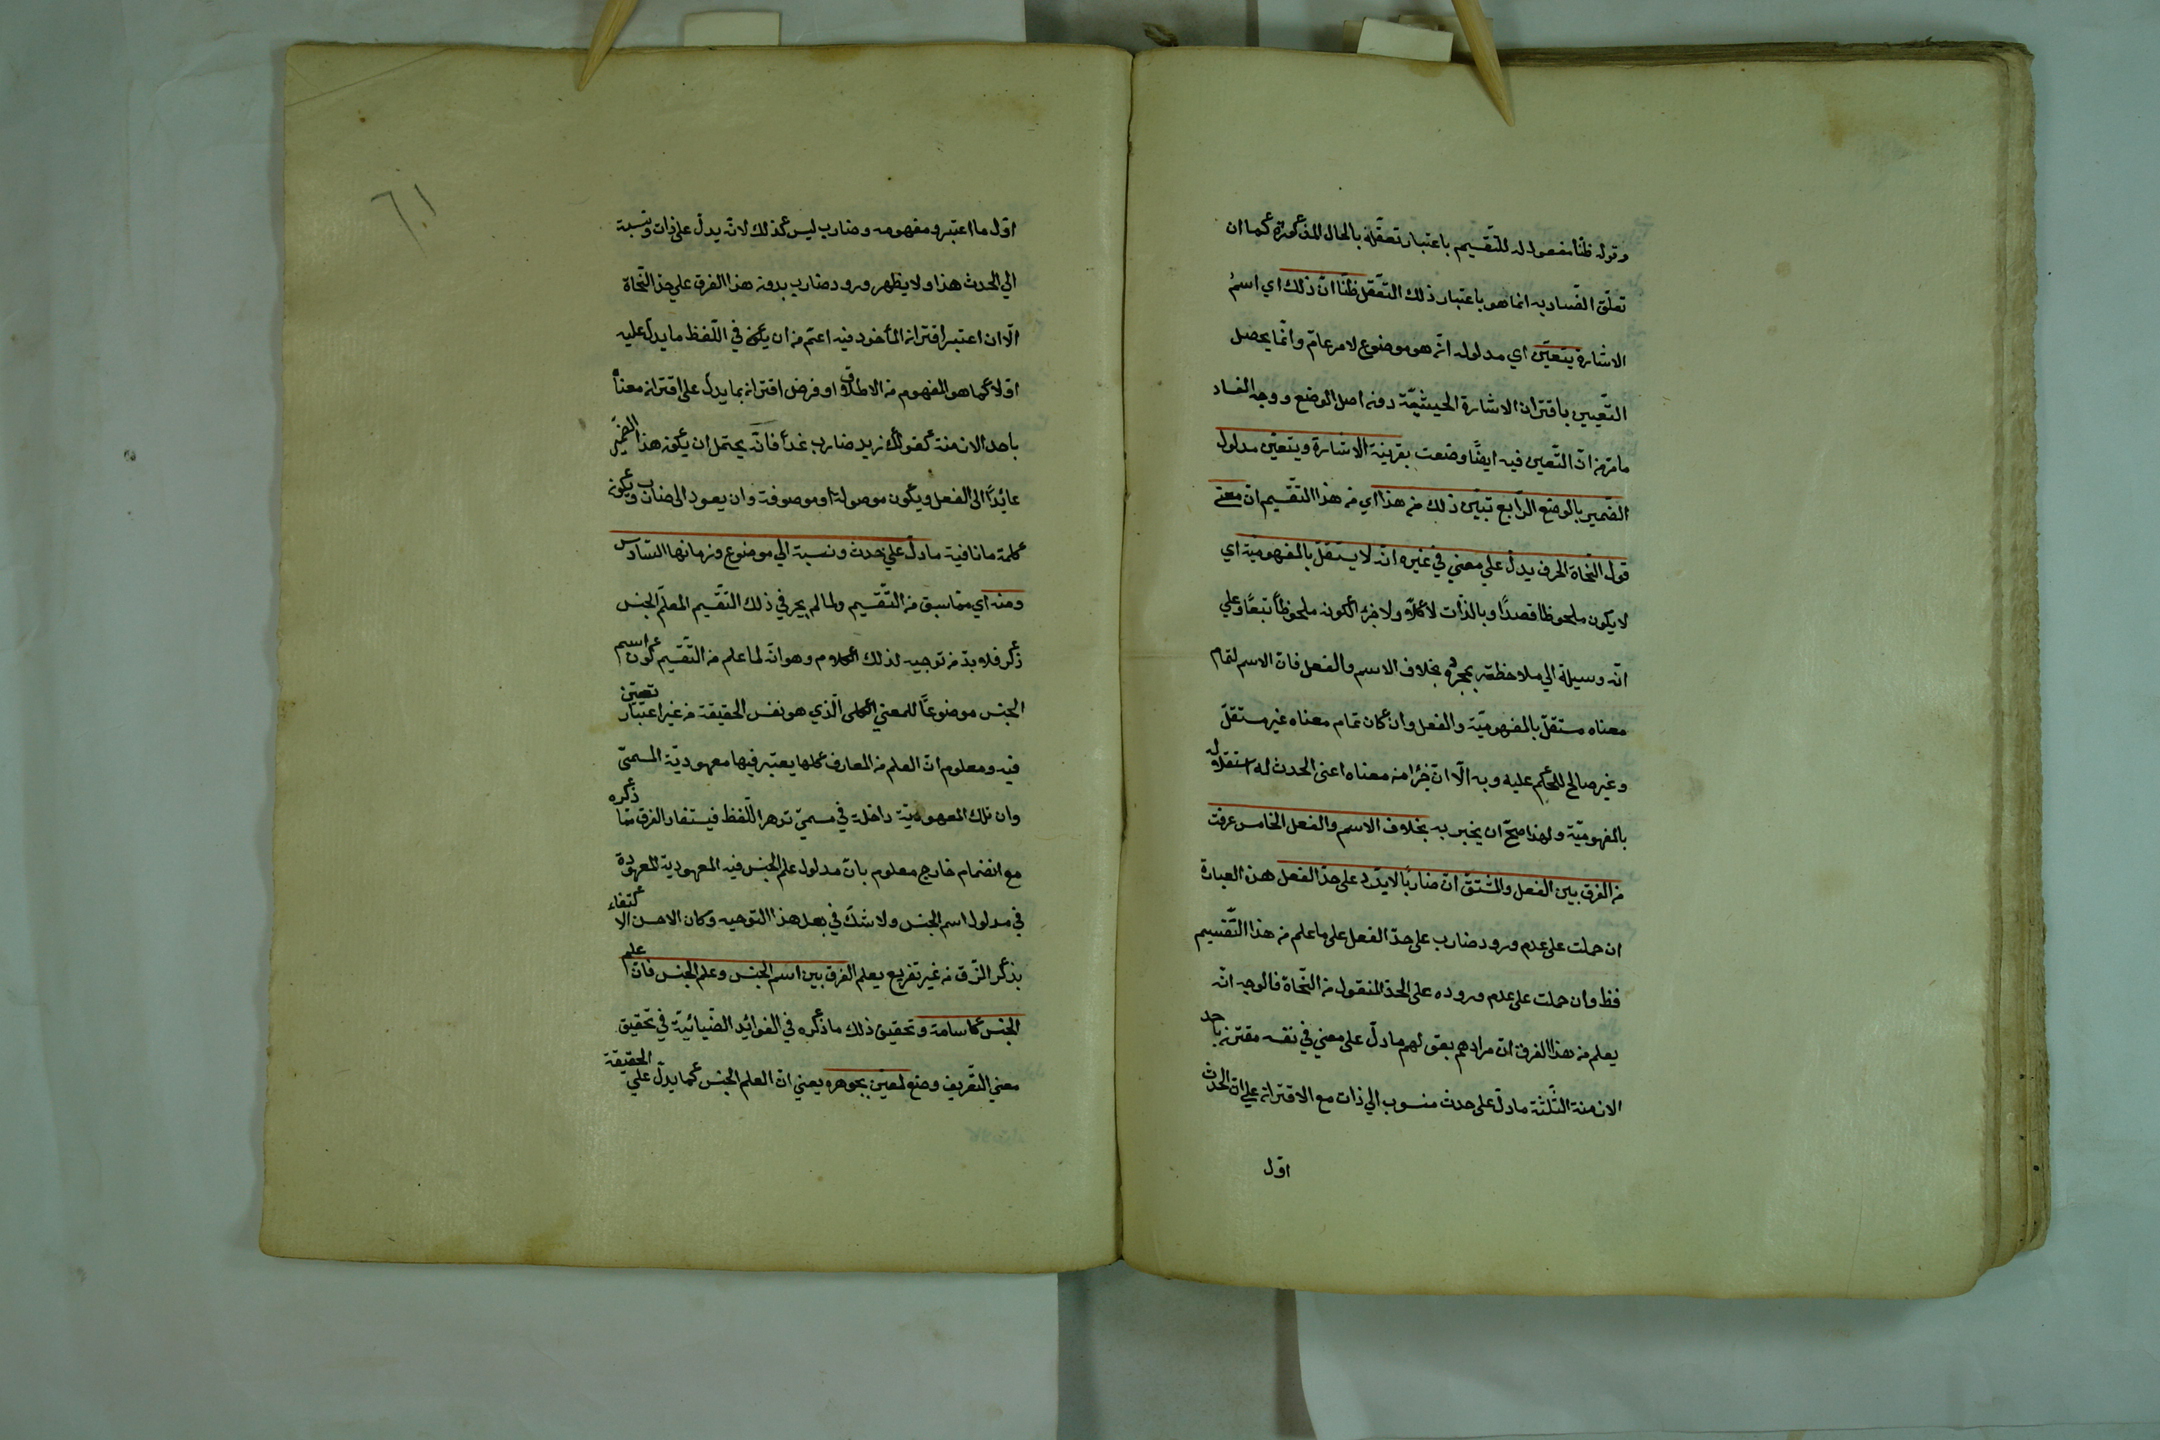 وقوله ظنّا مفعول له للتّقسيم باعتبار تعقّله بالحال المذكورة كما ان
تعلّق الفساد به انما هو باعتبار ذلك التّعقل ظنّا انّ ذلك اي اسم
الاشارة يتعيّن اي مدلوله انّه هو موضوع لامر عامّ وانّما يحصل
التّعيين باقتران الاشارة الحسّيّة دون اصل الوضع ووجه الفساد
ما مرّ من انّ التّعين فيه ايضًا وضعت بقرينة الاشارة ويتعيّن مدلول
الضّمير بالوضع الرّابع تبيّن ذلك من هذا اي من هذا التّقسيم انّ معني
قول النّحاة الحرف يدلّ علي معني في غيره انّه لا يستقلّ بالمفهوميّة اي
لا يكون ملحوظا قصدًا وبالذّات لا كلاّ ولا جزء لكونه ملحوظاً تبعًا وعلي
انّه وسيلة الي ملاحظة بخلاف الاسم والفعل فانّ الاسم لتمام
معناه مستقلّ بالمفهوميّة والفعل وان كان تمام معناه غير مستقلّ
وغير صالح للحكم عليه وبه الّا انّ جزءا من معناه اعنى الحدث له استقلال
بالمفهوميّة ولهذا صحّ ان يخبر به بخلاف الاسم والفعل الخامس عرفت
من الفرق بين الفعل والمشتقّ انّ ضاربًا لا يرد على حدّ الفعل هذه العبارة
ان حملت على عدم ورود ضارب على حدّ الفعل على ما علم من هذا التّقسيم
فظ وان حملت على عدم وروده على الحدّ المنقول من النّحاة فالوجه انّه
يعلم من هذا الفرق انّ مرادهم بقولهم ما دلّ على معني في نفسه مقترن باحد
الازمنة الثّلثة ما دلّ على حدث منسوب الي ذات مع الاقتران علي انّ الحدث
اوّل
٦١
اوّل ما اعتبر و مفهومه وضارب ليس كذلك لانّه يدلّ على ذات ونسبة
الي الحدث هذا ولا يظهر ورود ضارب بدون هذا الفرق علي حدّ النّحاة
الّا ان اعتبر اقترانه المأخوذ فيه اعمّ من ان يكون في اللّفظ ما يدلّ عليه
اوّلا كما هو المفهوم من الاطلاق او فرض اقترانه بما يدلّ على اقترانه معناه
باحد الازمنة كقولك زيد ضارب غداً فانّه يحتمل ان يكون هذا الضّمير
عائدًا الى الفعل ويكون موصولة او موصوفة وان يعود الى ضارب ويكون
كلمة ما نافية ما دلّ علي حدث ونسبة الي موضوع وزمانها السّادس
ومنه اي ممّا سبق من التّقسيم ولما لم يجر في ذلك التّقسيم العلم الجنس
ذكر فلا بدّ من توجيه لذلك الكلام وهو انّه لما علم من التّقسيم كون اسم
الجنس موضوعًا للمعنى الكلى الّذي هو نفس الحقيقة من غير اعتبار تعيّن
فيه ومعلوم انّ العلم من المعارف كلها يعتبر فيها معهوديّة المسمّى
وان تلك المعهوديّة داخلة في مسمّى جوهر اللّفظ فيستفاد الفرق ممّا ذكره
مع انضمام خارج معلوم بانّ مدلول علم الجنس فيه المعهودية المعهودة
في مدلول اسم الجنس ولا شكّ في بعد هذا التّوجيه وكان الاحسن الاكتفاء
بذكر الفرق من غير تفريع يعلم الفرق بين اسم الجنس وعلم الجنس فانّ علم
الجنس كاسامة وتحقيق ذلك ما ذكره في الفوائد الضّيائيّة في تحقيق
معني التّعريف وضع لمعيّن بجوهره يعني انّ العلم الجنس كما يدلّ علي الحقيقة